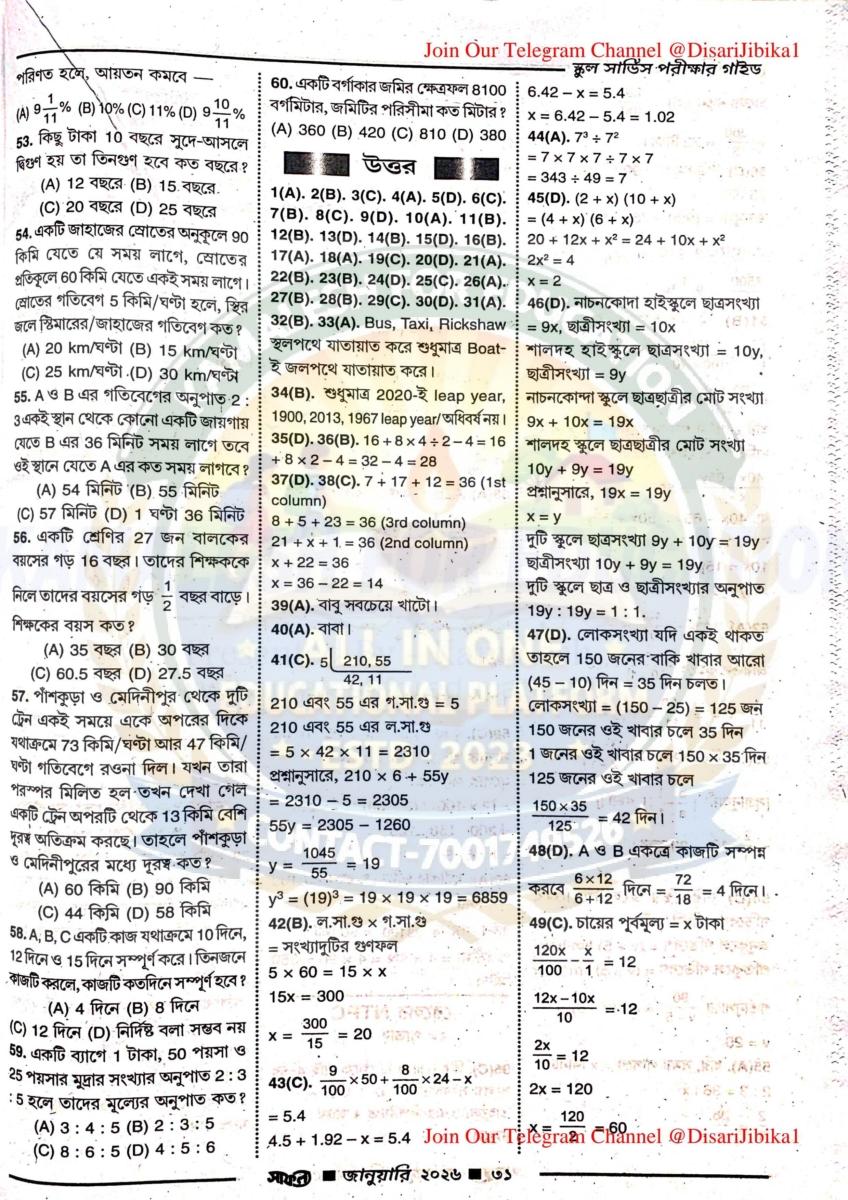 Join Our Telegram Channel @DisariJibika1
স্কুল সার্ভিস পরীক্ষার গাইড
পরিণত হলে, আয়তন কমবে —
(A) 9 1/11 % (B) 10% (C) 11% (D) 9 10/11 %
53. কিছু টাকা 10 বছরে সুদে-আসলে
দ্বিগুণ হয় তা তিনগুণ হবে কত বছরে?
(A) 12 বছরে (B) 15 বছরে
(C) 20 বছরে (D) 25 বছরে
54. একটি জাহাজের স্রোতের অনুকূলে 90
কিমি যেতে যে সময় লাগে, স্রোতের
প্রতিকূলে 60 কিমি যেতে একই সময় লাগে।
স্রোতের গতিবেগ 5 কিমি/ঘণ্টা হলে, স্থির
জলে স্টিমারের/জাহাজের গতিবেগ কত?
(A) 20 km/ঘণ্টা (B) 15 km/ঘণ্টা
(C) 25 km/ঘণ্টা (D) 30 km/ঘণ্টা
55. A ও B এর গতিবেগের অনুপাত 2 :
3 একই স্থান থেকে কোনো একটি জায়গায়
যেতে B এর 36 মিনিট সময় লাগে তবে
ওই স্থানে যেতে A এর কত সময় লাগবে?
(A) 54 মিনিট (B) 55 মিনিট
(C) 57 মিনিট (D) 1 ঘণ্টা 36 মিনিট
56. একটি শ্রেণির 27 জন বালকের
বয়সের গড় 16 বছর। তাদের শিক্ষককে
নিলে তাদের বয়সের গড় 1/2 বছর বাড়ে।
শিক্ষকের বয়স কত?
(A) 35 বছর (B) 30 বছর
(C) 60.5 বছর (D) 27.5 বছর
57. পাঁশকুড়া ও মেদিনীপুর থেকে দুটি
ট্রেন একই সময়ে একে অপরের দিকে
যথাক্রমে 73 কিমি/ঘণ্টা আর 47 কিমি/
ঘণ্টা গতিবেগে রওনা দিল। যখন তারা
পরস্পর মিলিত হল তখন দেখা গেল
একটি ট্রেন অপরটি থেকে 13 কিমি বেশি
দূরত্ব অতিক্রম করছে। তাহলে পাঁশকুড়া
ও মেদিনীপুরের মধ্যে দূরত্ব কত?
(A) 60 কিমি (B) 90 কিমি
(C) 44 কিমি (D) 58 কিমি
58. A, B, C একটি কাজ যথাক্রমে 10 দিনে,
12 দিনে ও 15 দিনে সম্পূর্ণ করে। তিনজনে
কাজটি করলে, কাজটি কতদিনে সম্পূর্ণ হবে?
(A) 4 দিনে (B) 8 দিনে
(C) 12 দিনে (D) নির্দিষ্ট বলা সম্ভব নয়
59. একটি ব্যাগে 1 টাকা, 50 পয়সা ও
25 পয়সার মুদ্রার সংখ্যার অনুপাত 2 : 3
: 5 হলে তাদের মূল্যের অনুপাত কত?
(A) 3 : 4 : 5 (B) 2 : 3 : 5
(C) 8 : 6 : 5 (D) 4 : 5 : 6
60. একটি বর্গাকার জমির ক্ষেত্রফল 8100
বর্গমিটার, জমিটির পরিসীমা কত মিটার?
(A) 360 (B) 420 (C) 810 (D) 380
উত্তর
1(A). 2(B). 3(C). 4(A). 5(D). 6(C).
7(B). 8(C). 9(D). 10(A). 11(B).
12(B). 13(D). 14(B). 15(D). 16(B).
17(A). 18(A). 19(C). 20(D). 21(A).
22(B). 23(B). 24(D). 25(C). 26(A).
27(B). 28(B). 29(C). 30(D). 31(A).
32(B). 33(A). Bus, Taxi, Rickshaw
স্থলপথে যাতায়াত করে শুধুমাত্র Boat-
ই জলপথে যাতায়াত করে।
34(B). শুধুমাত্র 2020-ই leap year,
1900, 2013, 1967 leap year/অধিবর্ষ নয়।
35(D). 36(B). 16 + 8 × 4 ÷ 2 – 4 = 16
+ 8 × 2 – 4 = 32 – 4 = 28
37(D). 38(C). 7 + 17 + 12 = 36 (1st
column)
8 + 5 + 23 = 36 (3rd column)
21 + x + 1 = 36 (2nd column)
x + 22 = 36
x = 36 – 22 = 14
39(A). বাবু সবচেয়ে খাটো।
40(A). বাবা।
41(C). 5 | 210, 55
42, 11
210 এবং 55 এর গ.সা.গু = 5
210 এবং 55 এর ল.সা.গু
= 5 × 42 × 11 = 2310
প্রশ্নানুসারে, 210 × 6 + 55y
= 2310 – 5 = 2305
55y = 2305 – 1260
y = 1045/55 = 19
y³ = (19)³ = 19 × 19 × 19 = 6859
42(B). ল.সা.গু × গ.সা.গু
= সংখ্যাদুটির গুণফল
5 × 60 = 15 × x
15x = 300
x = 300/15 = 20
43(C). 9/100 × 50 + 8/100 × 24 – x
= 5.4
4.5 + 1.92 – x = 5.4
6.42 – x = 5.4
x = 6.42 – 5.4 = 1.02
44(A). 7³ ÷ 7²
= 7 × 7 × 7 ÷ 7 × 7
= 343 ÷ 49 = 7
45(D). (2 + x) (10 + x)
= (4 + x) (6 + x)
20 + 12x + x² = 24 + 10x + x²
2x² = 4
x = 2
46(D). নাচনকোন্দা হাইস্কুলে ছাত্রসংখ্যা
= 9x, ছাত্রীসংখ্যা = 10x
শালদহ হাইস্কুলে ছাত্রসংখ্যা = 10y,
ছাত্রীসংখ্যা = 9y
নাচনকোন্দা স্কুলে ছাত্রছাত্রীর মোট সংখ্যা
9x + 10x = 19x
শালদহ স্কুলে ছাত্রছাত্রীর মোট সংখ্যা
10y + 9y = 19y
প্রশ্নানুসারে, 19x = 19y
x = y
দুটি স্কুলে ছাত্রসংখ্যা 9y + 10y = 19y
ছাত্রীসংখ্যা 10y + 9y = 19y
দুটি স্কুলে ছাত্র ও ছাত্রীসংখ্যার অনুপাত
19y : 19y = 1 : 1.
47(D). লোকসংখ্যা যদি একই থাকত
তাহলে 150 জনের বাকি খাবার আরো
(45 – 10) দিন = 35 দিন চলত।
লোকসংখ্যা = (150 – 25) = 125 জন
150 জনের ওই খাবার চলে 35 দিন
1 জনের ওই খাবার চলে 150 × 35 দিন
125 জনের ওই খাবার চলে
150 × 35/125 = 42 দিন।
48(D). A ও B একত্রে কাজটি সম্পন্ন
করবে 6 × 12/6 + 12 দিনে = 72/18 = 4 দিনে।
49(C). চায়ের পূর্বমূল্য = x টাকা
120x/100 – x/1 = 12
12x – 10x/10 = 12
2x/10 = 12
2x = 120
x = 120/2 = 60
Join Our Telegram Channel @DisariJibika1
সাফল্য ■ জানুয়ারি ২০২৬ ■ ৩১
ALL IN ONE
EDUCATIONAL PLATFORM
ESTD 2023
CONTACT-7001749526